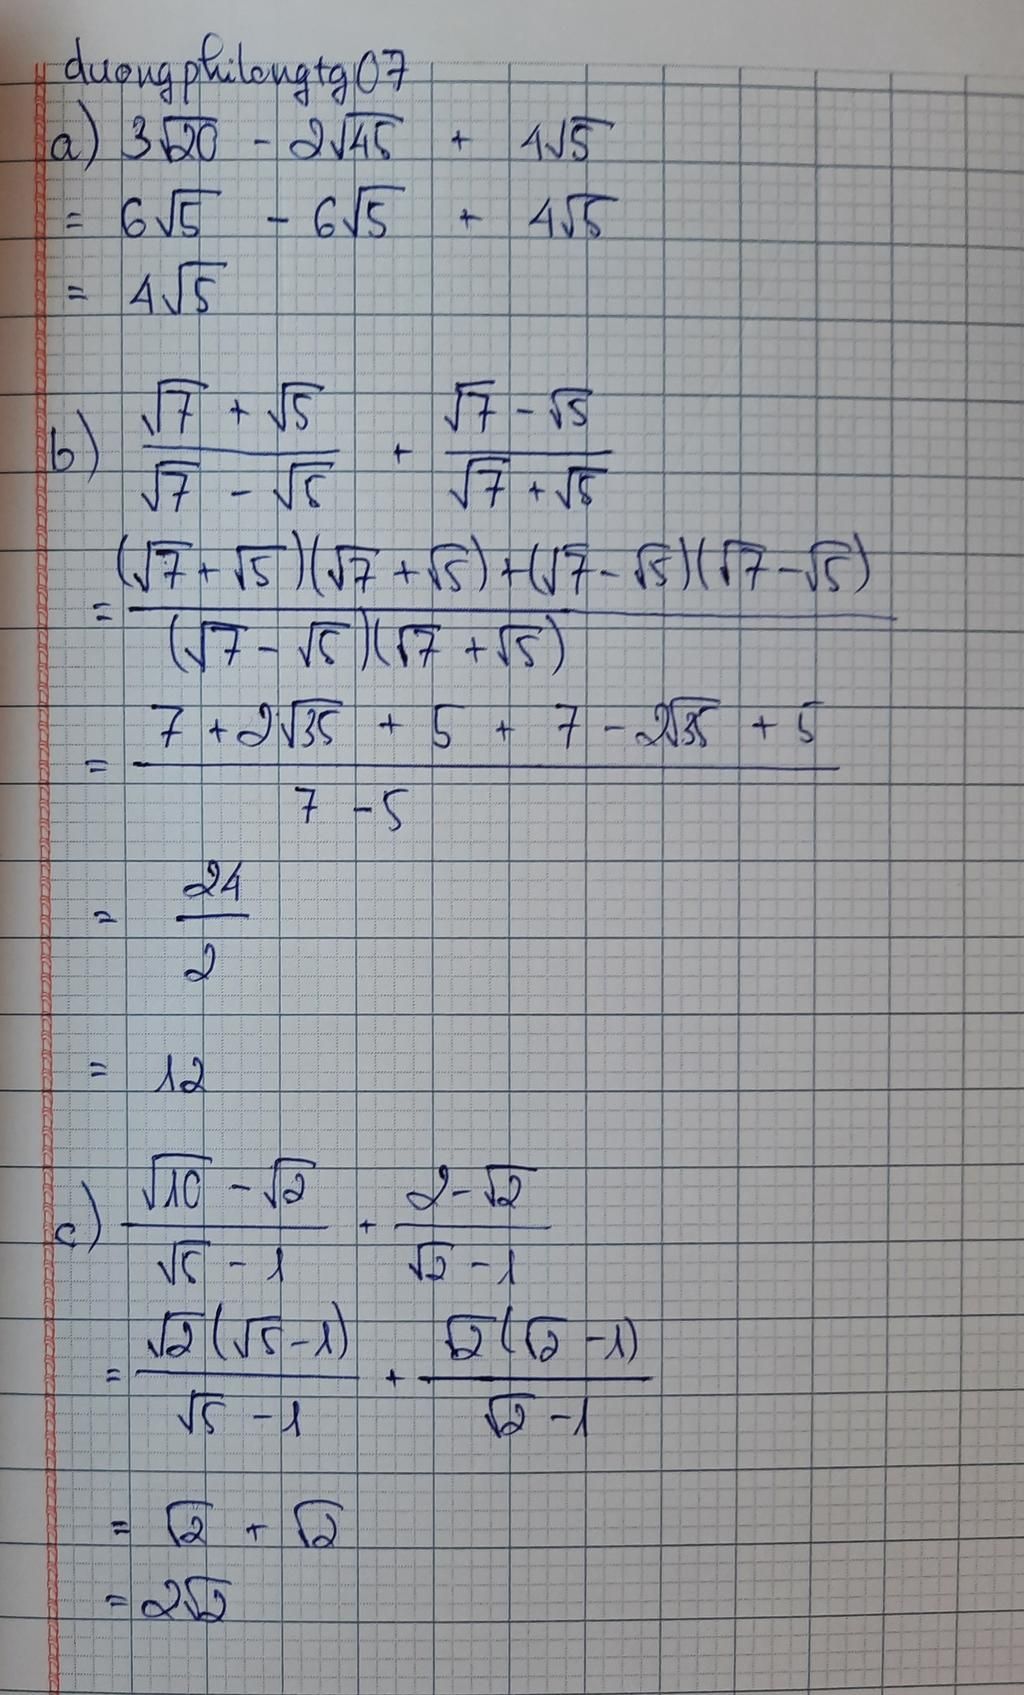 duongphilongtg07
a) 3√20 - 2√45 + 4√5
= 6√5 - 6√5 + 4√5
= 4√5
b) (√7 + √5)/(√7 - √5) + (√7 - √5)/(√7 + √5)
= ((√7 + √5)(√7 + √5) + (√7 - √5)(√7 - √5))/((√7 - √5)(√7 + √5))
= (7 + 2√35 + 5 + 7 - 2√35 + 5)/(7 - 5)
= 24/2
= 12
c) (√10 - √2)/(√5 - 1) + (2 - √2)/(√2 - 1)
= (√2(√5 - 1))/(√5 - 1) + (√2(√2 - 1))/(√2 - 1)
= √2 + √2
= 2√2